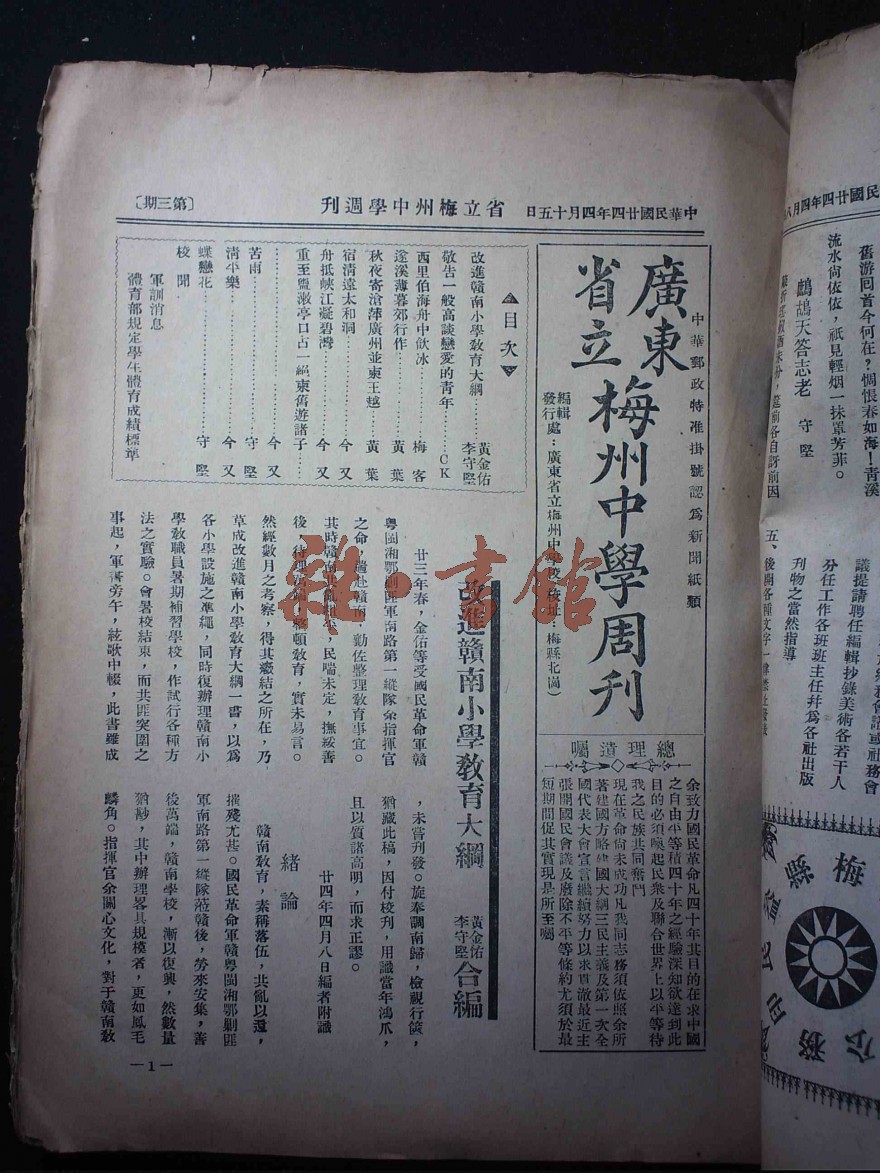 中華民國廿四年四月十五日
省立梅州中學週刊
〔第三期〕
中華郵政特准掛號認爲新聞紙類
廣東
省立
梅州中學周刊
編輯
發行處：廣東省立梅州中學校（校址：梅縣北崗）
總理遺囑
余致力國民革命凡四十年其目的在求中國
之自由平等積四十年之經驗深知欲達到此
目的必須喚起民衆及聯合世界上以平等待
我之民族共同奮鬥
現在革命尚未成功凡我同志務須依照余所
著建國方略建國大綱三民主義及第一次全
國代表大會宣言繼續努力以求貫澈最近主
張開國民會議及廢除不平等條約尤須於最
短期間促其實現是所至囑
目次
改進贛南小學教育大綱……黃金佑 李守堅
敬告一般高談戀愛的青年……CK
西里伯海舟中飲冰……梅客
遂溪薄暮郊行作……黃葉
秋夜寄滄萍廣州並柬王越……黃葉
宿清遠太和洞……今又
舟抵峽江凝碧灣……今又
重至盬潄亭口占一絕柬舊遊諸子……
……今又
苦雨……守堅
清平樂……今又
蝶戀花……守堅
校聞
軍訓消息
體育部規定學生體育成績標準
改進贛南小學教育大綱
黃金佑
李守堅
合編
廿三年春，金佑等受國民革命軍贛
粵閩湘鄂剿匪軍南路第一縱隊余指揮官
之命，遄赴贛南，勷佐整理教育事宜。
其時贛南
，民喘未定，撫綏善
後，待理
頓教育，實未易言。
然經數月之考察，得其癥結之所在，乃
草成改進贛南小學教育大綱一書，以爲
各小學設施之準繩，同時復辦理贛南小
學教職員暑期補習學校，作試行各種方
法之實驗。會暑校結束，而共匪突圍之
事起，軍書旁午，絃歌中輟，此書雖成
，未嘗刊發。旋奉調南歸，檢視行篋，
猶藏此稿，因付校刊，用識當年鴻爪，
且以質諸高明，而求正謬。
廿四年四月八日編者附識
緒論
贛南教育，素稱落伍，共亂以還，
摧殘尤甚。國民革命軍贛粵閩湘鄂剿匪
軍南路第一縱隊蒞贛後，勞來安集，善
後萬端，贛南學校，漸以復興，然數量
猶尠，其中辦理畧具規模者，更如鳳毛
麟角。指揮官余關心文化，對于贛南教
—1—
雜書館
民國廿四年四月八
舊游回首今何在？惆悵春如海！青溪
流水尙依依，祇見輕烟一抹罩芳菲。
鷓鴣天答志老
守堅
，莚前各自訝前因
議提請聘任編輯抄錄美術各若干人
分任工作各班班主任幷爲各社出版
刊物之當然指導
五、後開各種文字一律
梅
務